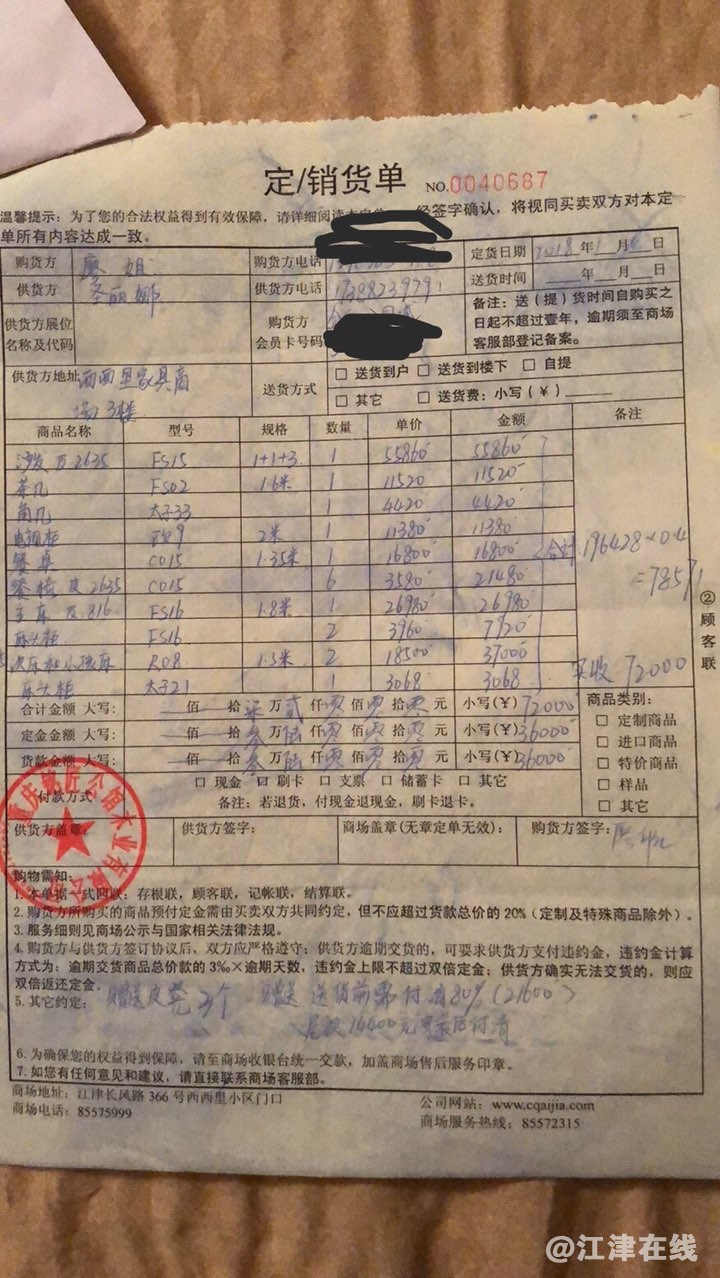 定/销货单 NO.0040687
温馨提示：为了您的合法权益得到有效保障，请详细阅读 经签字确认，将视同买卖双方对本定
单所有内容达成一致。
购货方 廖姐 购货方电话 定货日期 2018年1月 日
供货方 圣丽娜 供货方电话 送货时间 年 月 日
供货方展位名称及代码 购货方会员卡号码 备注：送（提）货时间自购买之日起不超过壹年，逾期须至商场客服部登记备案。
供货方地址 西西里家具商场3楼 送货方式 □ 送货到户 □ 送货到楼下 □ 自提
□ 其它 □ 送货费：小写（¥）
商品名称 型号 规格 数量 单价 金额 备注
沙发 皮2635 FS15 1+1+3 1 55860 55860
茶几 FS02 1.6米 1 11520 11520
角几 太子33 1 4420 4420
电视柜 9 2米 1 11380 11380
餐桌 C015 1.35米 1 16800 16800 合计196428×0.4
餐椅 皮2635 C015 6 3580 21480 =78571
主床 皮816 FS16 1.8米 1 26980 26980
床头柜 FS16 2 3960 7920
次床和小孩床 R08 1.5米 2 18500 37000 实收72000
床头柜 太子21 1 3068 3068
合计金额 大写： 佰 拾柒万贰仟零佰零拾零元 小写(¥)72000
定金金额 大写： 佰 拾叁万陆仟零佰零拾零元 小写(¥)36000
货款金额 大写： 佰 拾叁万陆仟零佰零拾零元 小写(¥)36000
商品类别：
□ 定制商品
□ 进口商品
□ 特价商品
□ 样品
□ 其它
付款方式 □ 现金 □ 刷卡 □ 支票 □ 储蓄卡 □ 其它
备注：若退货，付现金退现金，刷卡退卡。
②顾客联
供货方盖章： 供货方签字： 商场盖章(无章定单无效)： 购货方签字：
购物需知：
1. 本单据一式四联：存根联，顾客联，记帐联，结算联。
2. 购货方所购买的商品预付定金需由买卖双方共同约定，但不应超过货款总价的20%（定制及特殊商品除外）。
3. 服务细则见商场公示与国家相关法律法规。
4. 购货方与供货方签订协议后，双方应严格遵守；供货方逾期交货的，可要求供货方支付违约金，违约金计算
方式为：逾期交货商品总价款的3‰×逾期天数，违约金上限不超过双倍定金；供货方确实无法交货的，则应
双倍返还定金。
5. 其它约定： 赠送皮凳3个 送货前需付清80%（21600）
尾款14400元 后付清
6. 为确保您的权益得到保障，请至商场收银台统一交款，加盖商场售后服务印章。
7. 如您有任何意见和建议，请直接联系商场客服部。
商场地址：江津长风路366号西西里小区门口 公司网站：www.cqaijia.com
商场电话：85575999 商场服务热线：85572315
@江津在线